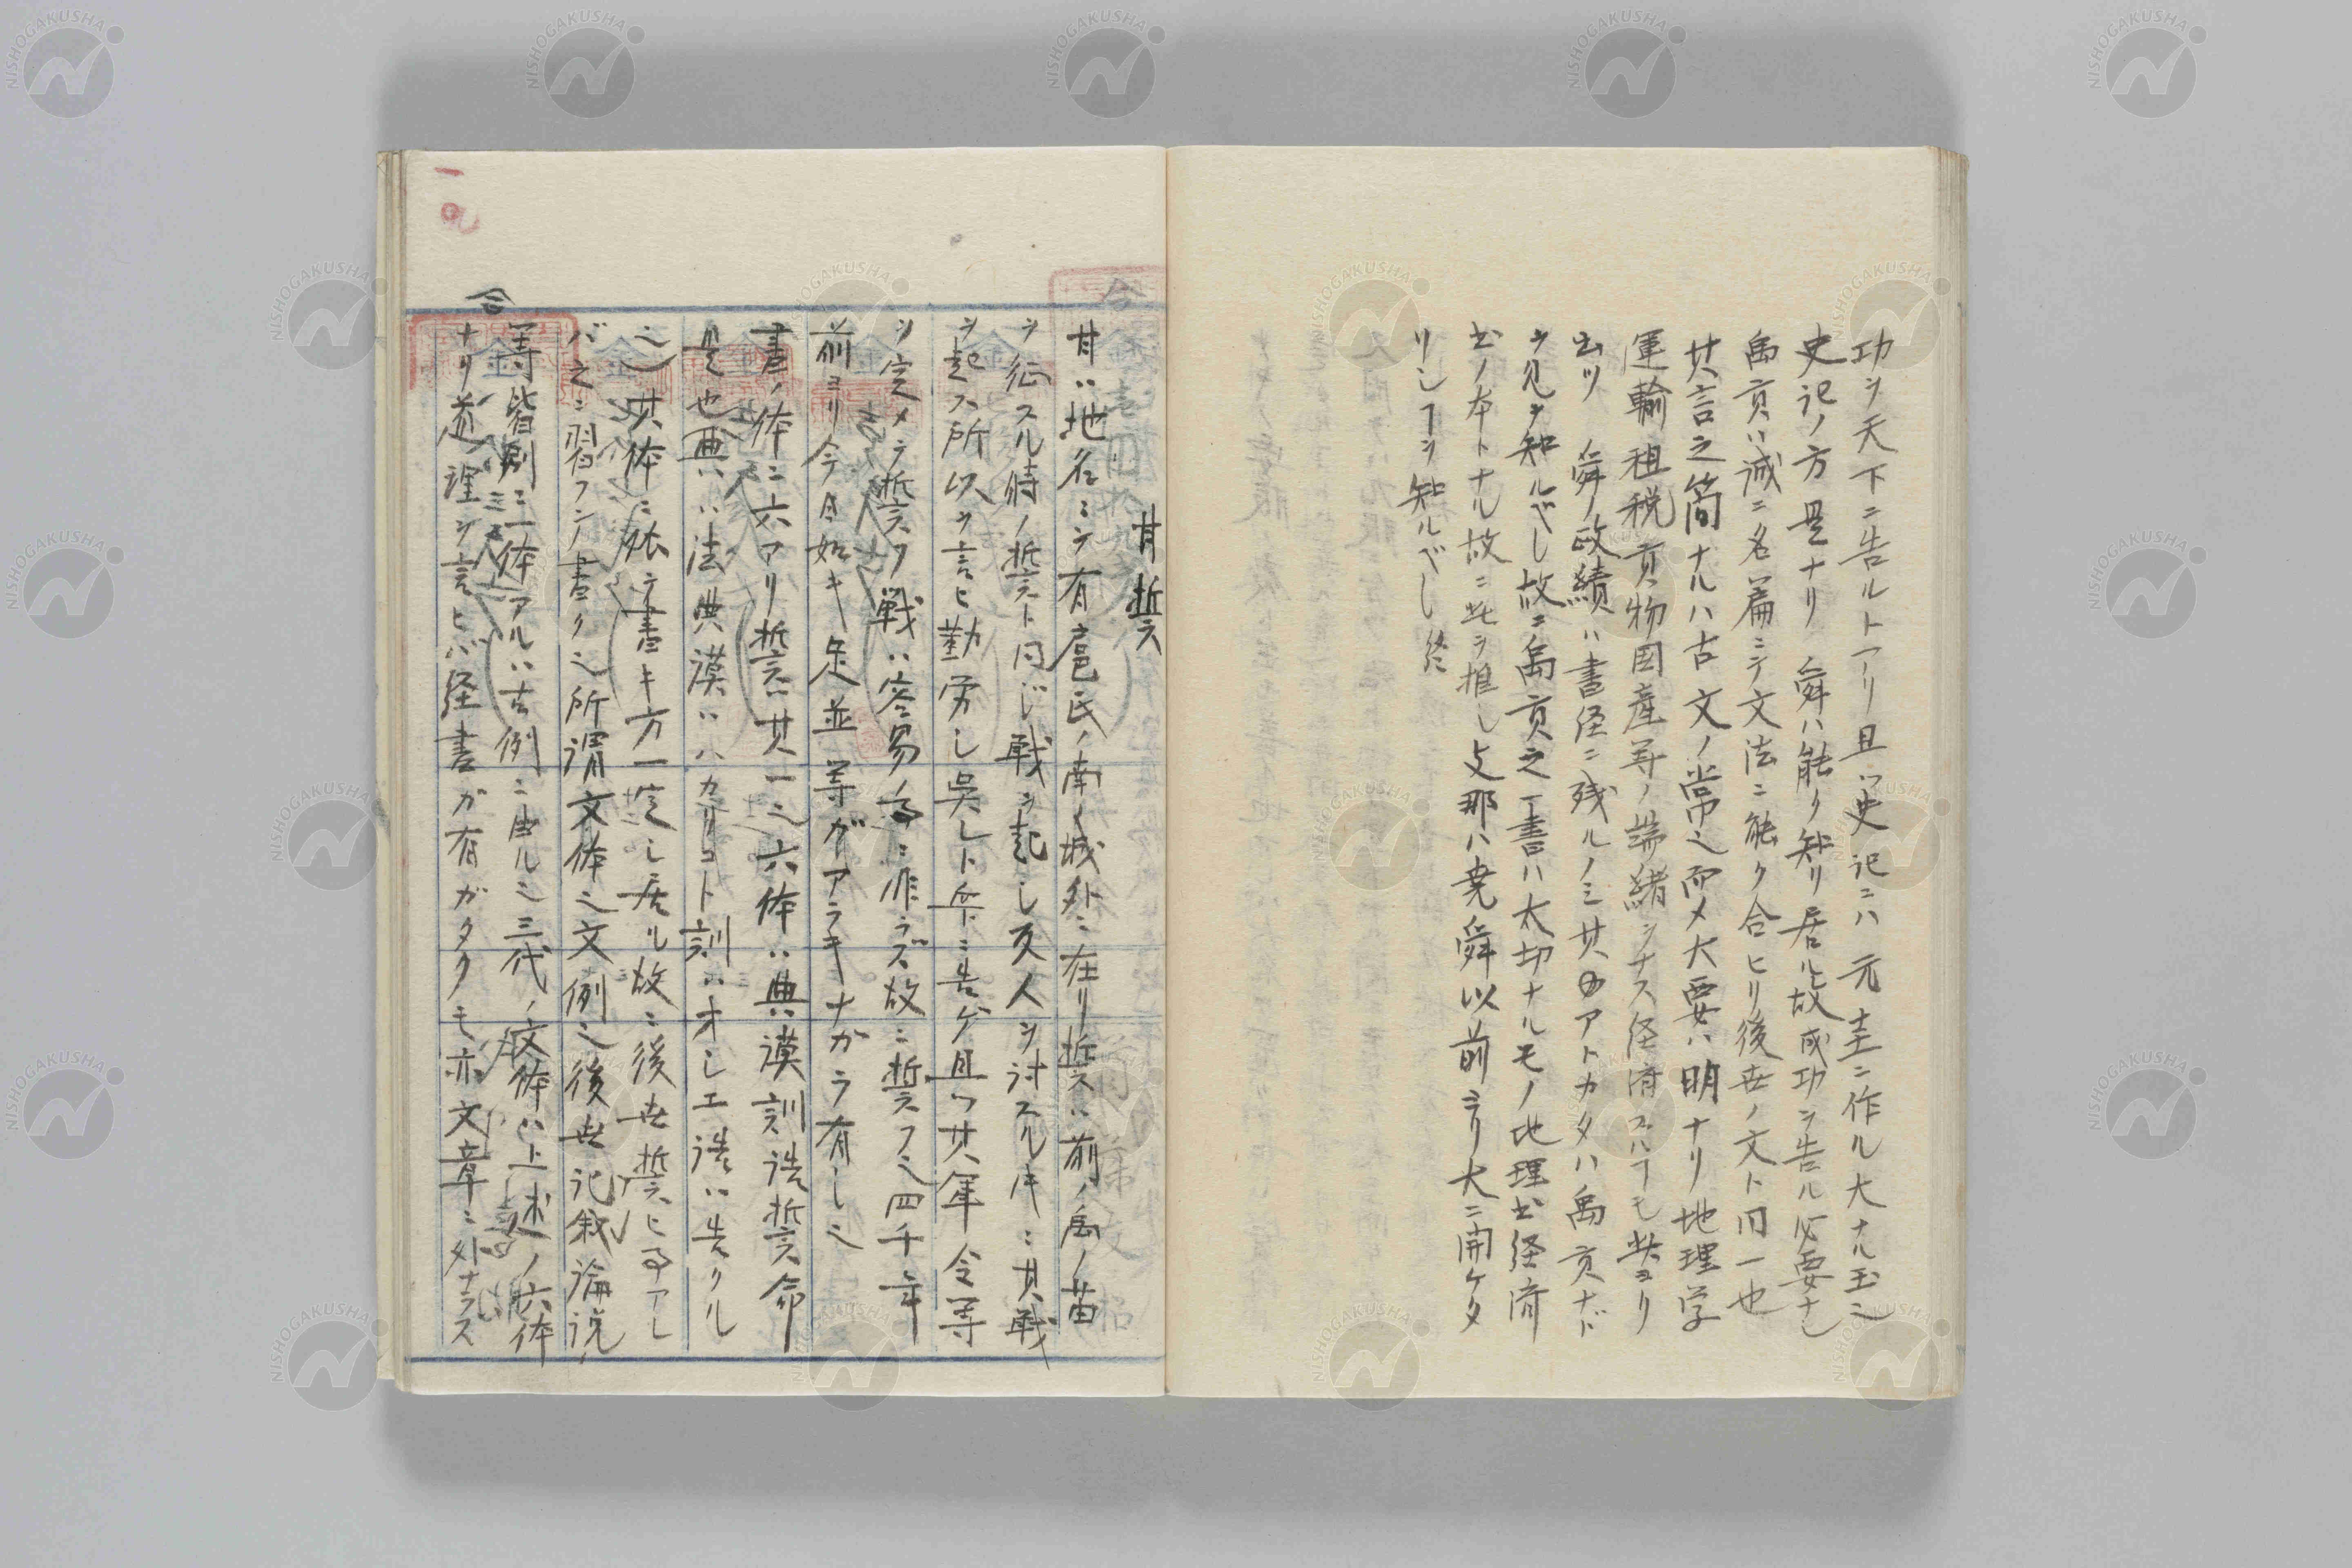 功ヲ天下ニ告ルトアリ且ツ史記ニハ元圭ニ作ル大ナル玉ニ
史記ノ方是ナリ 舜ハ能ク知リ居ル故成功ヲ告ル必要ナし
禹貢ハ誠ニ名篇ニテ文法ニ能ク合ヒリ後世ノ文ト同一也
其言之簡ナルハ古文ノ常之而メ大要ハ明ナリ地理学
運輸租税貢物国産等ノ端緒ヲナス経済スルヿモ此ヨリ
出ツ 舜ノ政績ハ書経ニ残ルノミ其アトカタハ禹貢ナド
ヲ見テ知ルベし故ニ禹貢之一書ハ大切ナルモノ地理書経済
書ノ本トナル故ニ此ヲ推し支那ハ堯舜以前ヨリ大ニ開ケタ
リしヿヲ知ルベし 終
甘誓
甘ハ地名ニシテ有扈氏ノ南ノ城外ニ在リ誓ハ前ノ禹ノ苗
ヲ征スル時ノ誓ト同じ戦ヲ起し又人ヲ討スル時ニ其戦
ヲ起ス所以ヲ言ヒ勤労し呉レト兵ニ告ゲ且ツ其軍令等
ヲ定メテ誓フ戦ハ容易ノ事ニ非ラズ故ニ誓フ之四千年
前ヨリ今日ノ如キ足並等ガアラキナガラ有し之
書ノ体ニ六アリ誓ハ其一之六体ハ典謨訓誥誓命
是也典ハ法典謨ハハカリコト訓ハオしエ誥ハ告クル
之其体ニ依テ書キ方一定し居ル故ニ後世誓ヒ事アレ
バ之ニ習フテ書ク之所謂文体之文例之後世記叙論説
等皆別ニ一体アルハ古例ニ由ル之三代ノ文体ハ上述ノ六体
ナリ道理ヲ言ヒバ経書ガ有ガタクモ亦文章ニ外ナラス
NISHOGAKUSHA